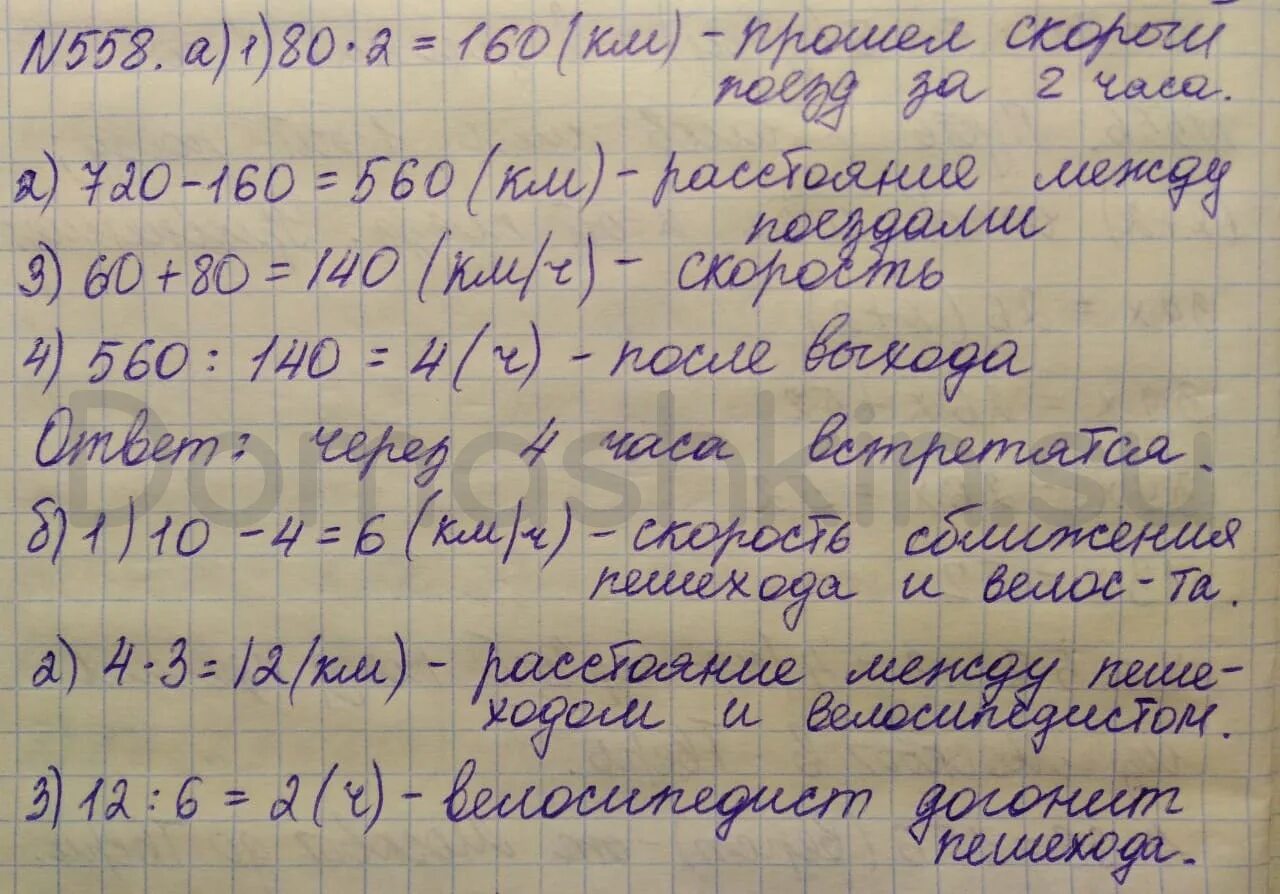 N558. а) 1) 80·2 = 160 (км) - прошел скорый
поезд за 2 часа.
2) 720-160 = 560 (км) - расстояние между
поездами
3) 60+80 = 140 (км/ч) - скорость
4) 560 : 140 = 4 (ч) - после выхода
Ответ: через 4 часа встретятся.
б) 1) 10 - 4 = 6 (км/ч) - скорость сближения
пешехода и велос-та.
2) 4·3 = 12 (км) - расстояние между пеше-
ходом и велосипедистом.
3) 12 : 6 = 2 (ч) - велосипедист догонит
пешехода.
Domashkin.su